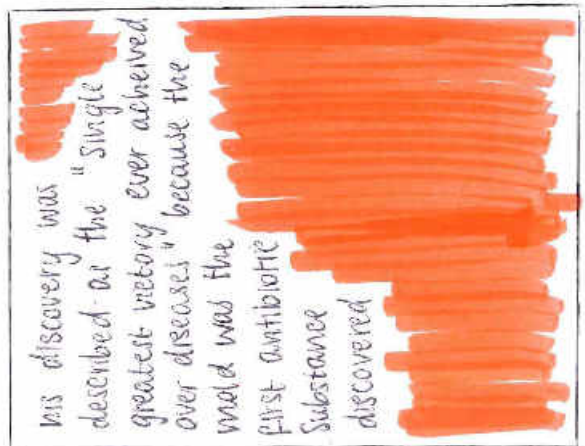 his discovery was
described as the "single
greatest victory ever acheived
over diseases" because the
mold was the
first antibiotic
substance
discovered